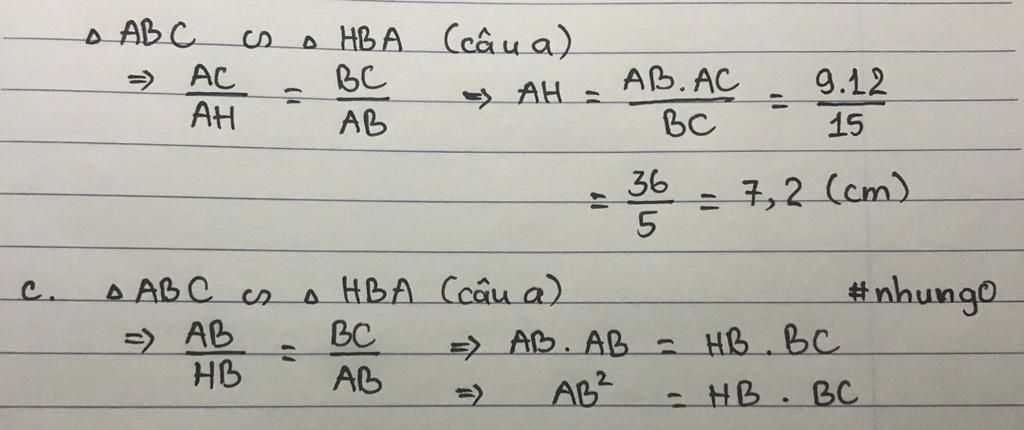 △ ABC ∽ △ HBA (câu a)
=> AC/AH = BC/AB => AH = AB.AC/BC = 9.12/15
= 36/5 = 7,2 (cm)
c. △ ABC ∽ △ HBA (câu a) #nhung0
=> AB/HB = BC/AB => AB.AB = HB.BC
=> AB² = HB.BC